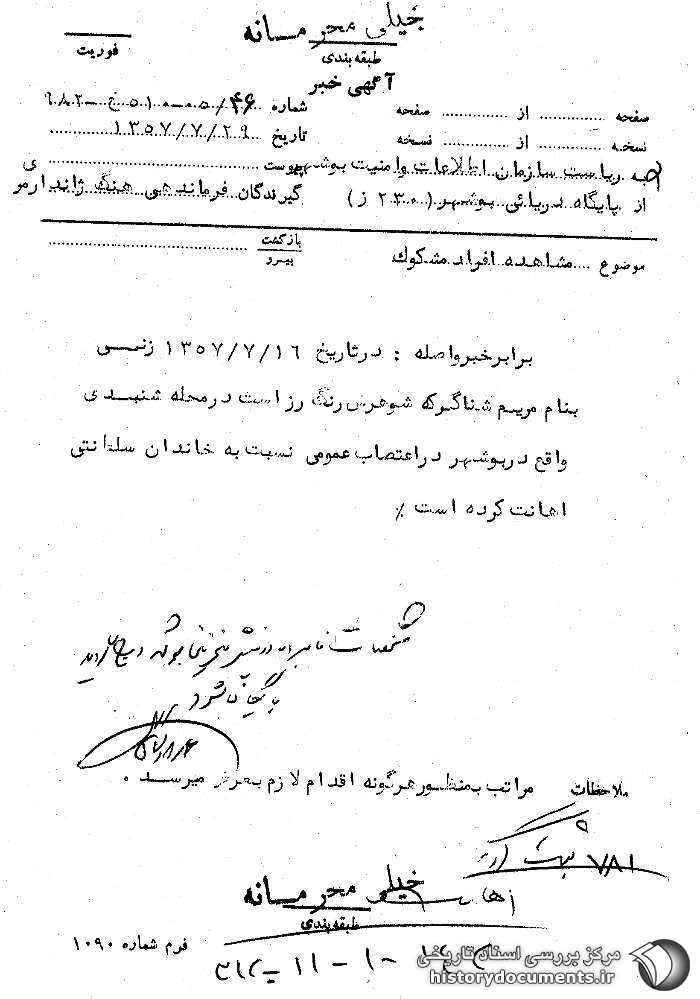 خیلی محرمانه
طبقه‌بندی
فوریت
آگهی خبر
صفحه ........ از ........ صفحه شماره ۴۶/
نسخه ........ از ........ نسخه تاریخ ۱۳۵۷/۷/۲۹
به ریاست سازمان اطلاعات وامنیت بوشهر پیوست
از پایگاه دریائی بوشهر (۲۳۰ ز) گیرندگان فرماندهی هنگ ژاندارمری
بازگشت
پیرو
موضوع مشاهده افراد مشکوک
برابرخبرواصله : درتاریخ ۱۳۵۷/۷/۱۶ زنی
بنام مریم شناگرکه شوهرش رنگ رز است درمحله شنبدی
واقع دربوشهر دراعتصاب عمومی نسبت به خاندان سلطنتی
اهانت کرده است ٪
بایگانی شود
ملاحظات مراتب بمنظورهرگونه اقدام لازم بعرض میرسد .
۷۸۱
خیلی محرمانه
طبقه‌بندی
فرم شماره ۱۰۹۰
مرکز بررسی اسناد تاریخی
historydocuments.ir